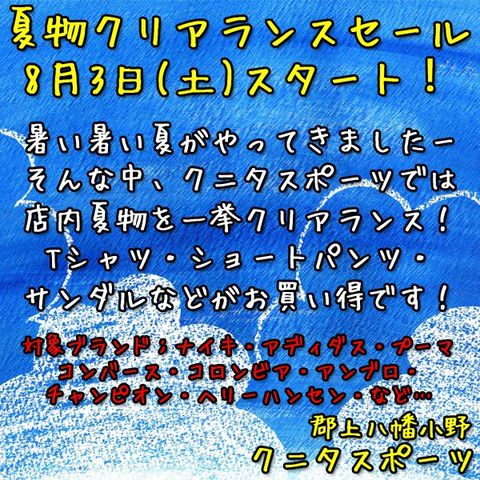 夏物クリアランスセール
8月3日(土)スタート！
暑い暑い夏がやってきましたー
そんな中、クニタスポーツでは
店内夏物を一挙クリアランス！
Tシャツ・ショートパンツ・
サンダルなどがお買い得です！
対象ブランド；ナイキ・アディダス・プーマ
コンバース・コロンビア・アンブロ・
チャンピオン・ヘリーハンセン・など…
郡上八幡小野
クニタスポーツ